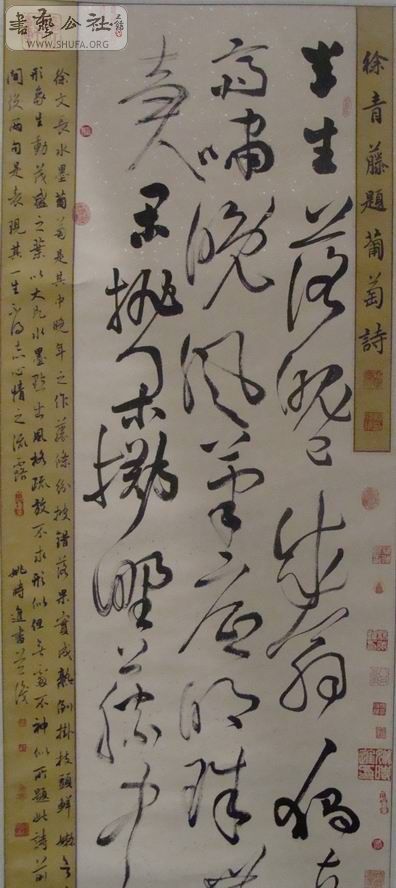 書藝公社
WWW.SHUFA.ORG
徐青藤題葡萄詩
半生落魄已成翁獨
齋嘯晚風筆底明珠
賣閒拋閒擲野藤中
徐文長水墨葡萄是其中晚年之作藤條紛披錯落果實成熟倒掛枝頭鮮嫩
形象生動茂盛之葉以大片水墨點出風格疏放不求形似但無處不神似所題此詩前
間後兩句是表現其一生不得志心情之流露
姚時進書並識